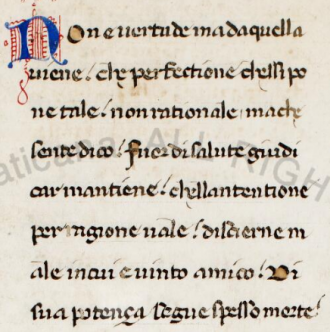 Non e vertude ma da quella
viene / che perfectione chessi po
ne tale / non rationale / ma che
sente dico / fuor di salute giudi
car mantiene / chellantentione
per ragione vale / discierne m
ale in cui e vinto amico / Di
sua potença segue spesso morte /